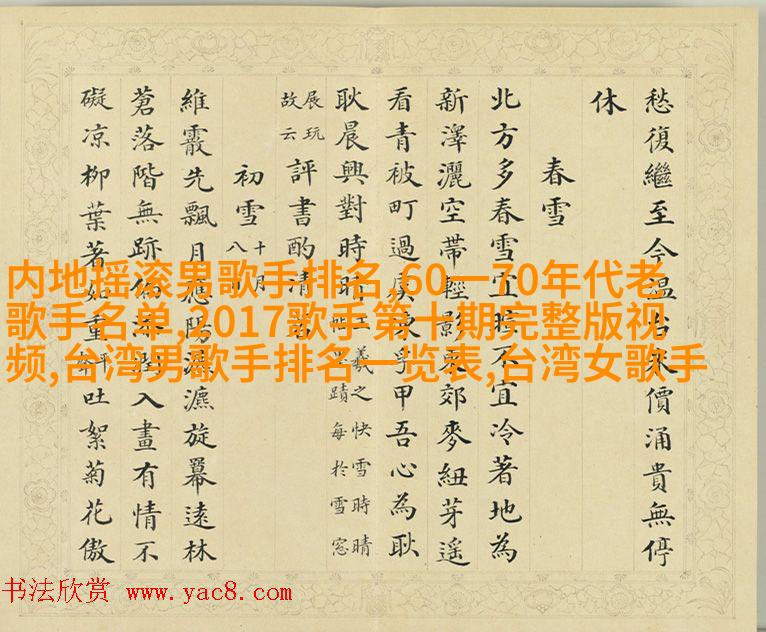 愁復繼至今温台價涌貴無停
休
春雪
北方多春雪宜不宜冷著地為
新澤灑空帶輕影東郊麥紐芽遥
看青被町過虞孚甲吾心為耿
耿晨興對時晴
王羲之快雪時晴
蹟每於雪窓
展玩
故云
評書酌清
初雪
十月
八
維霰先飄月應陽漉旋羃遠林
蒼落階無跡添入畫有情不
礙凉柳葉著如重吐絮菊花傲
内地摇滚男歌手排名,60一70年代老
歌手名单,2017歌手第十期完整版视
频,台湾男歌手排名一览表,台湾女歌手
书法欣赏 www.yac8.com